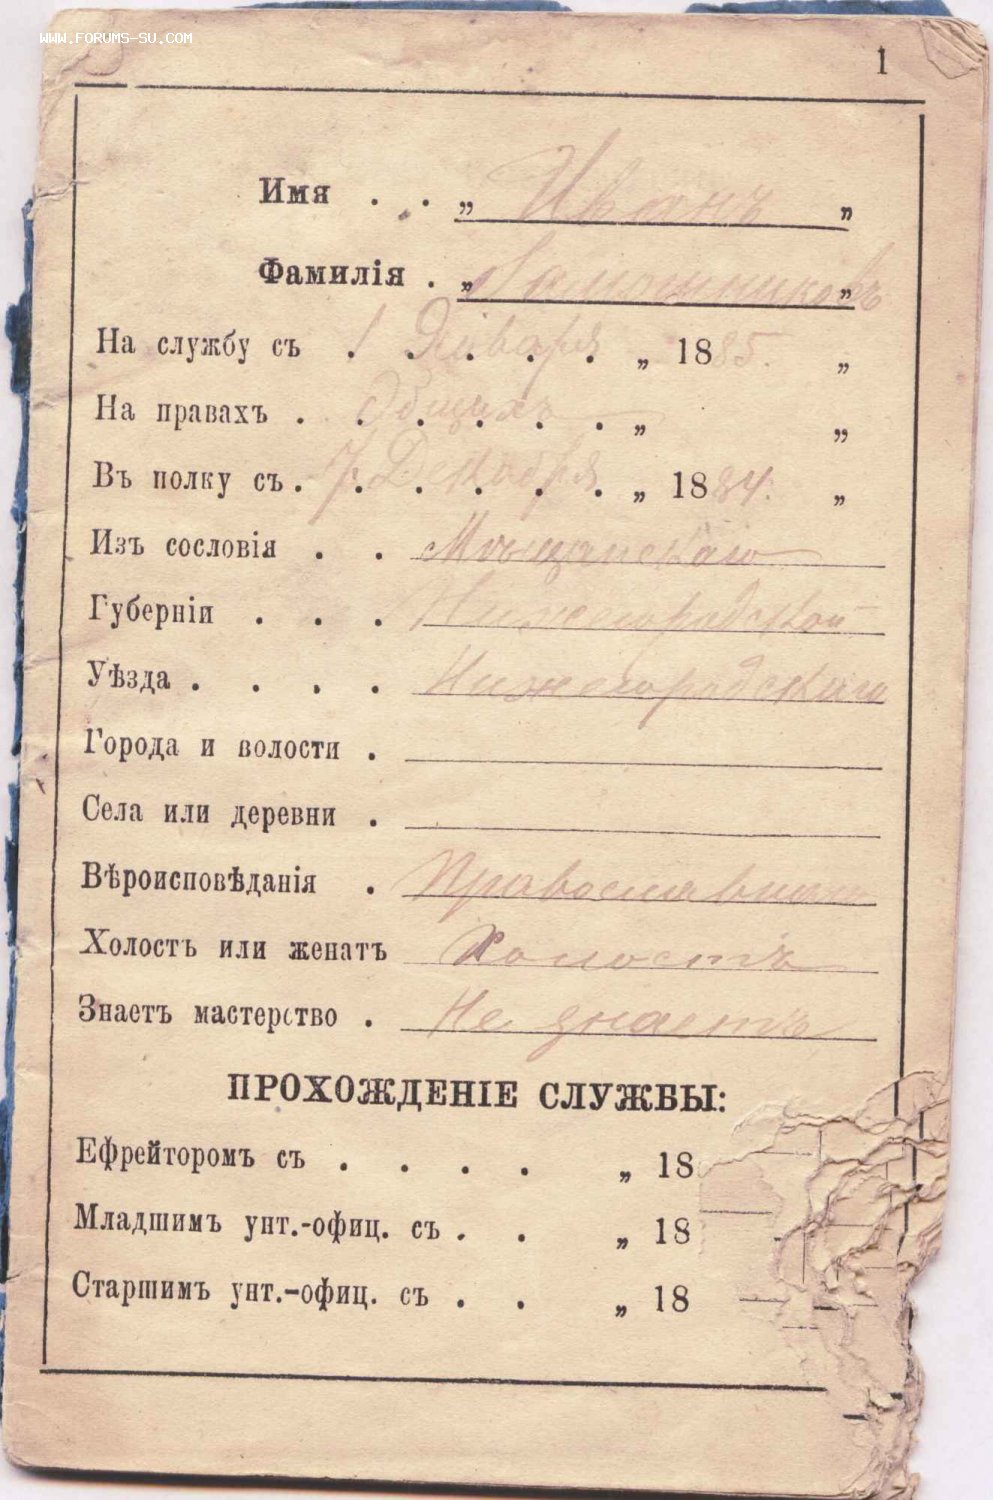 WWW.FORUMS-SU.COM
1
Имя . . „ Иванъ „
Фамилія . „ „
На службу съ 1 Января „ 1885. „
На правахъ . Общихъ „ „
Въ полку съ 7 Декабря „ 1884. „
Изъ сословія . . Мѣщанскаго
Губерніи . . . Нижегородской
Уѣзда . . . . Нижегородскаго
Города и волости .
Села или деревни .
Вѣроисповѣданія . Православнаго
Холостъ или женатъ Холостъ
Знаетъ мастерство . Не знаетъ
ПРОХОЖДЕНІЕ СЛУЖБЫ:
Ефрейторомъ съ . . . . „ 18
Младшимъ унт.-офиц. съ . . „ 18
Старшимъ унт.-офиц. съ . . „ 18